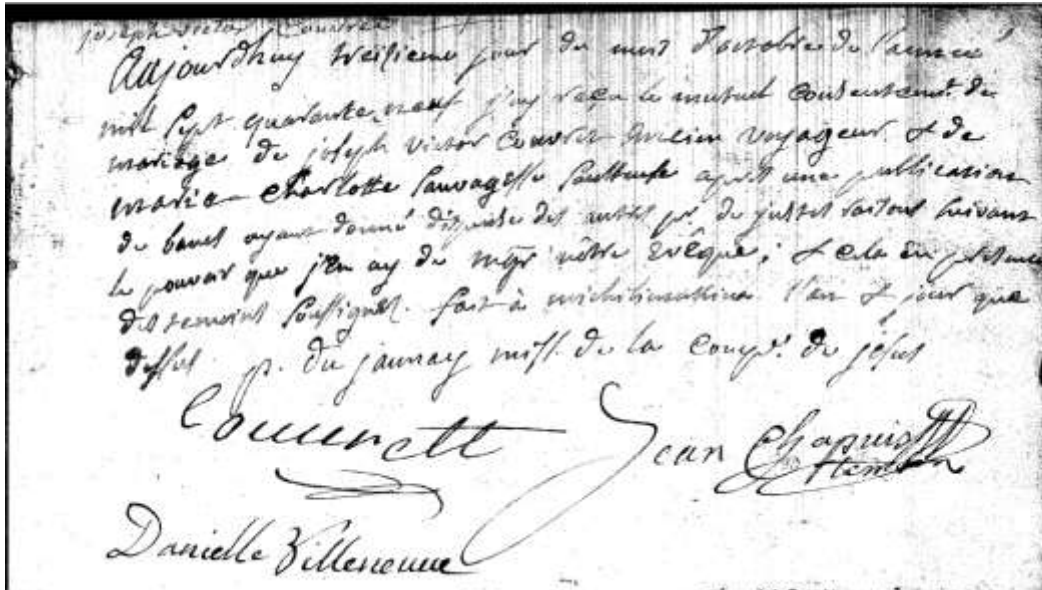 joseph victor Couvret
Aujourdhuy treisieme jour du mois d'octobre de l'annee
mil sept quarante neuf j'ay reçu le mutuel consentemt. de
mariage de joseph victor Couvret ancien voyageur & de
marie charlotte Sauvagesse apres une publication
de bancs ayant donné dispense des autres pr. de justes raisons suivant
le pouvoir que j'en ay de mgr nôtre evêque; & cela en presence
des temoins soussignés. fait à michilimakina l'an & jour que
dessus p. du jaunay miss. de la Comp. de jesus
Couurett Jean Chapuis
temoin
Danielle Villeneuue